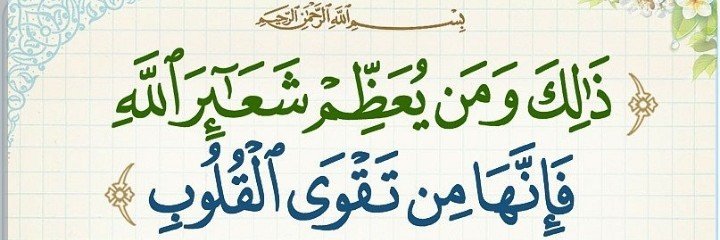 بِسْمِ اللَّهِ الرَّحْمَٰنِ الرَّحِيمِ
﴿ ذَٰلِكَ وَمَن يُعَظِّمْ شَعَـٰٓئِرَ ٱللَّهِ
فَإِنَّهَا مِن تَقْوَى ٱلْقُلُوبِ ﴾